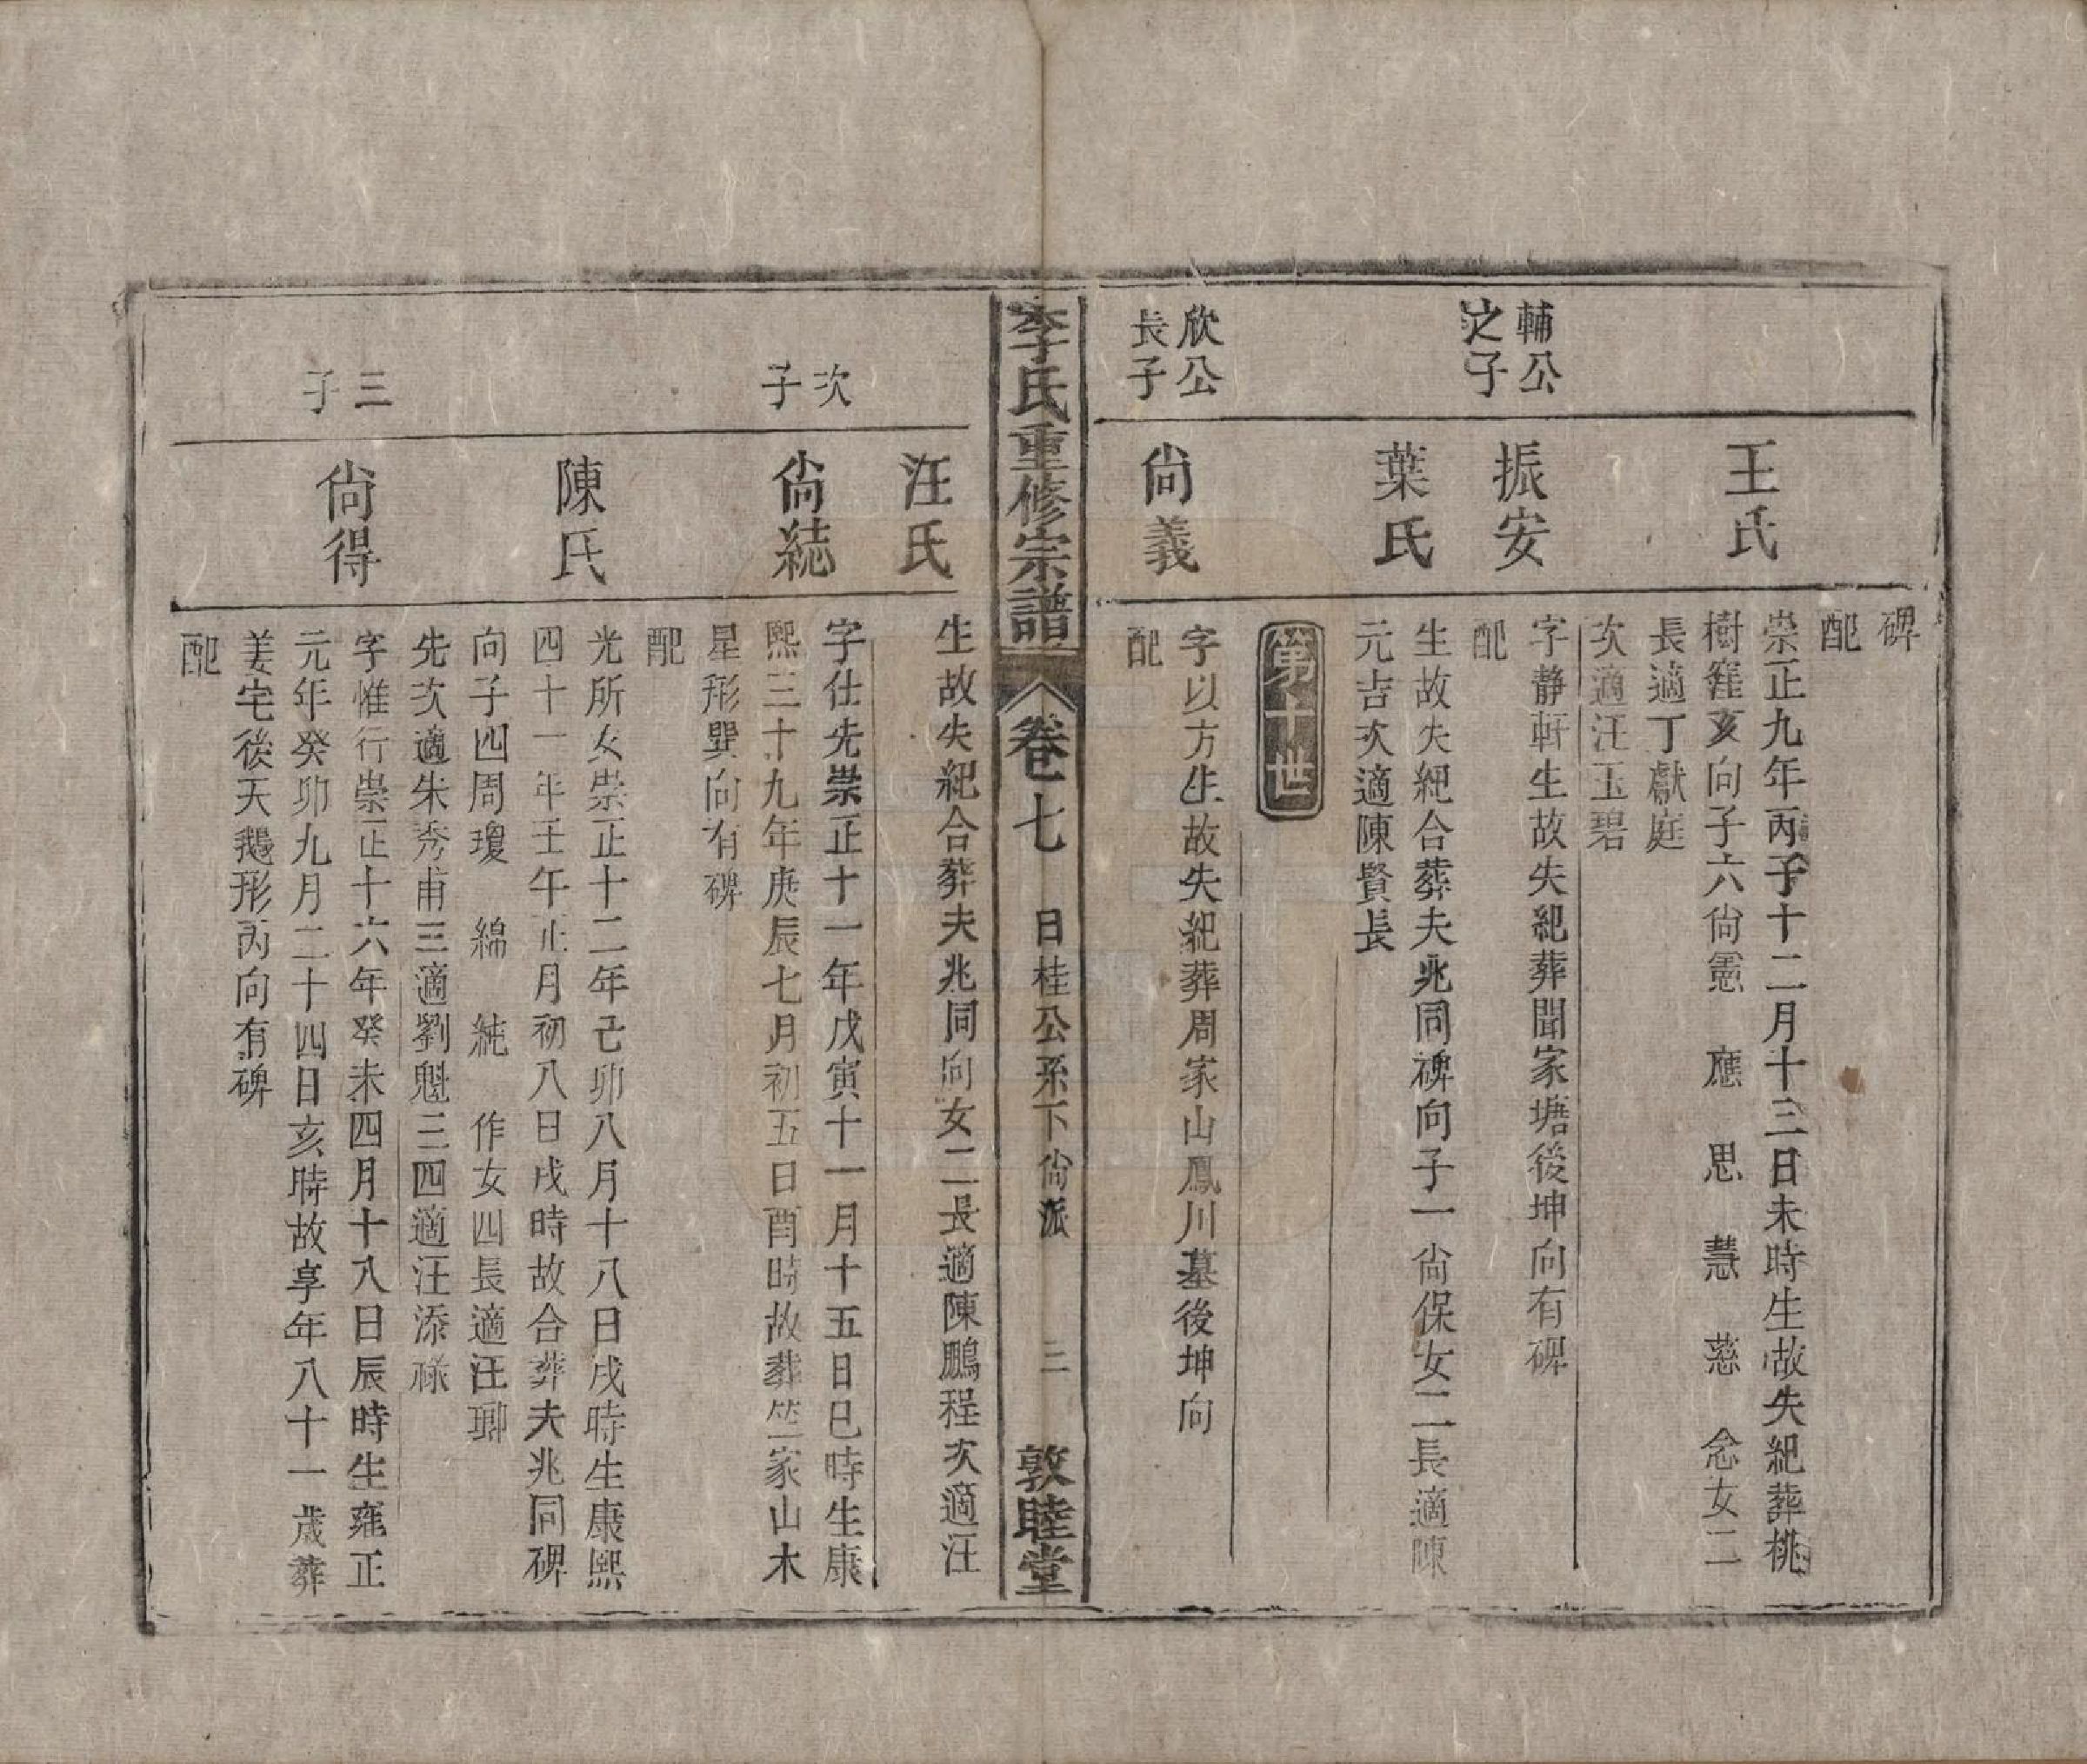 碑
配
王氏
崇正九年丙子十二月十三日未時生故失紀葬桃
樹窪亥向子六尙憲 應 思 慧 慈 念女二
長適丁獻庭
次適汪玉碧
輔公
之子
振安
字靜軒生故失紀葬聞家塘後坤向有碑
配
葉氏
生故失紀合葬夫兆同碑向子一尙保女二長適陳
元吉次適陳賢長
第十世
欣公
長子
尙義
字以方生故失紀葬周家山鳳川墓後坤向
配
李氏重修宗譜
卷七
日桂公系下尙派
三
敦睦堂
汪氏
生故失紀合葬夫兆同向女二長適陳鵬程次適汪
次子
尙綕
字仕先崇正十一年戊寅十一月十五日巳時生康
熙三十九年庚辰七月初五日酉時故葬竺家山木
星形巽向有碑
配
陳氏
光所女崇正十二年己卯八月十八日戌時生康熙
四十一年壬午正月初八日戌時故合葬夫兆同碑
向子四周瓊 綿 純 作女四長適汪瑯
先次適朱秀甫三適劉魁三四適汪添祿
三子
尙得
字惟行崇正十六年癸未四月十八日辰時生雍正
元年癸卯九月二十四日亥時故享年八十一歲葬
姜宅後天鵝形丙向有碑
配